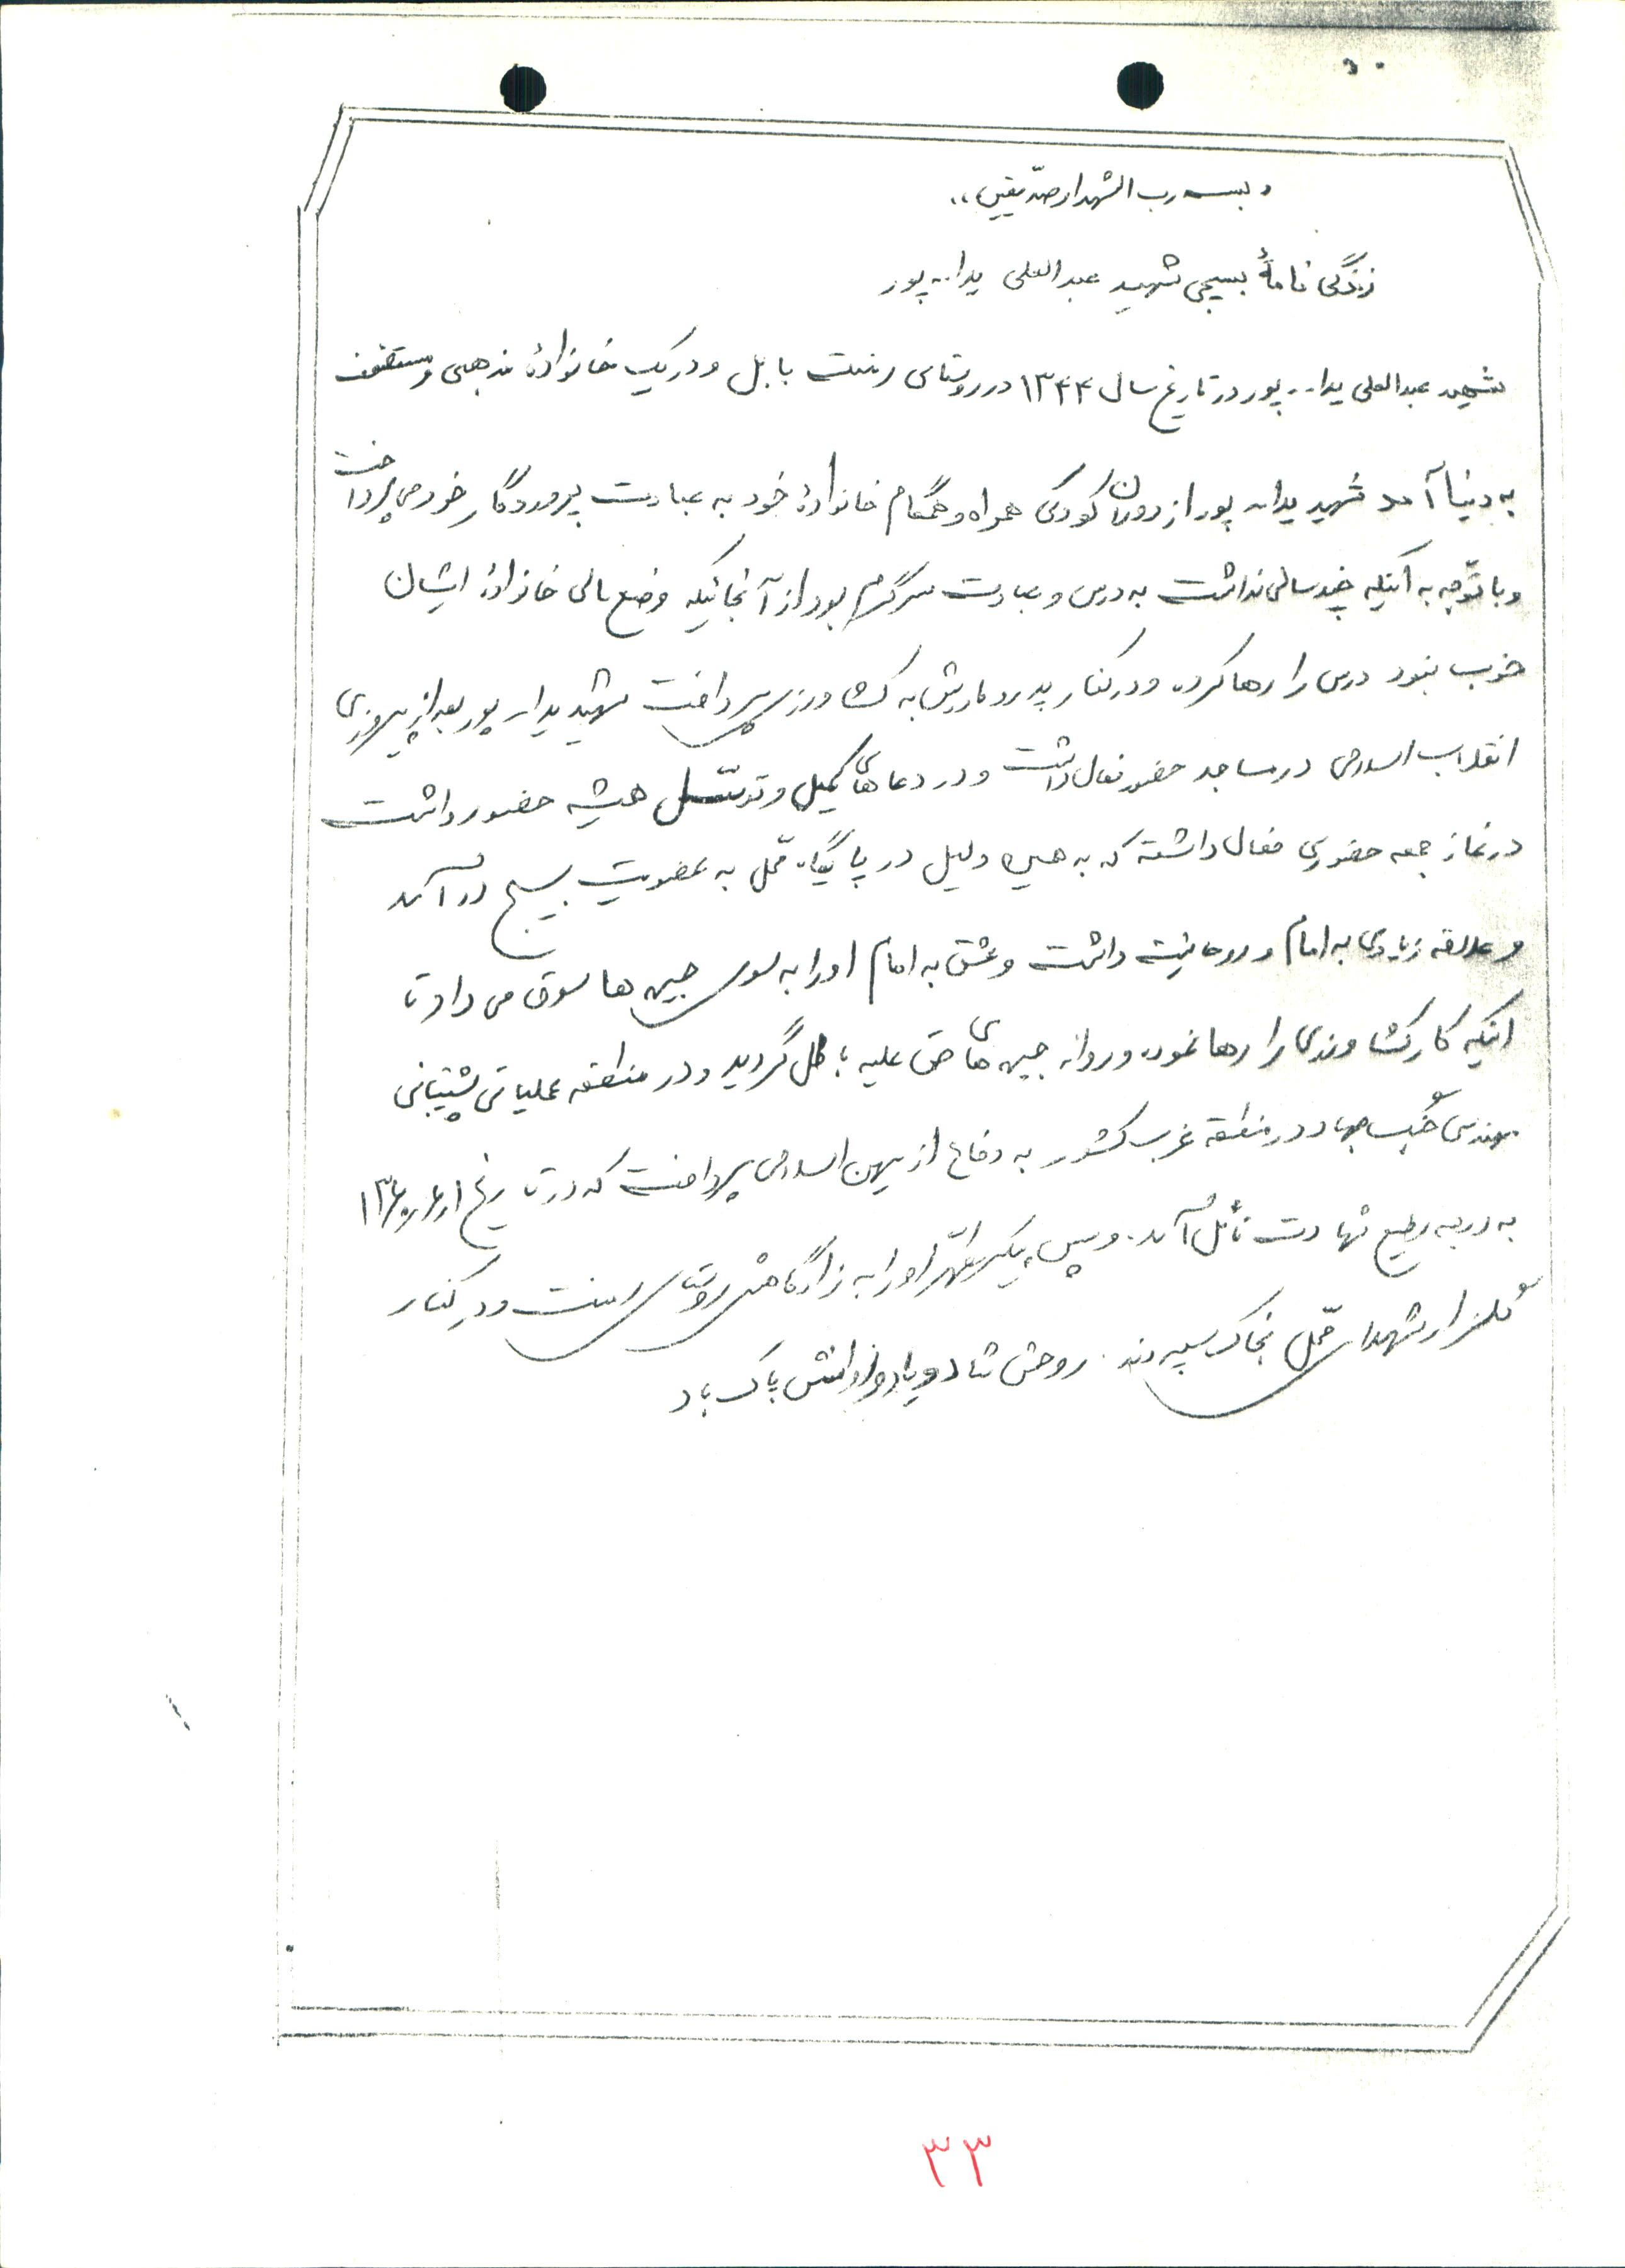 « بسمه رب الشهدا و صدّیقین »
زندگی نامهٔ بسیجی شهید عبدالعلی یداله پور
شهید عبدالعلی یداله پور در تاریخ سال ۱۳۴۴ در روستای رمنت بابل و در یک خانوادهٔ مذهبی و مستضعف
به دنیا آمد شهید یداله پور از دوران کودکی همراه و همگام خانوادهٔ خود به عبادت پروردگار خود می پرداخت
و با توّجه به اینکه چند سالی نداشت به درس و عبادت سرگرم بود از آنجائیکه وضع مالی خانوادهٔ ایشان
خوب نبود درس را رها کرده و در کنار پدر و مادرش به کشاورزی پرداخت شهید یداله پور بعد از پیروزی
انقلاب اسلامی در مساجد حضور فعال داشت و در دعاهای کمیل و توسّل همیشه حضور داشت
در نماز جمعه حضوری فعال داشته که به همین دلیل در پایگاه محّل به عضویت بسیج در آمد
و علاقه زیادی به امام و روحانیت داشت و عشق به امام او را به سوی جبهه ها سوق می داد تا
اینکه کار کشاورزی را رها نموده و روانه جبهه های حق علیه باطل گردید و در منطقه عملیاتی پشتیبانی
مهندسی جنگ جهاد در منطقه غرب کشور به دفاع از میهن اسلامی پرداخت که در تاریخ
به درجه رفیع شهادت نائل آمد. و سپس پیکر مطهّر او را به زادگاهش روستای رمنت و در کنار
گلزار شهدای محّل بخاک سپردند. روحش شاد و یاد و روانش پاک باد
۳۳